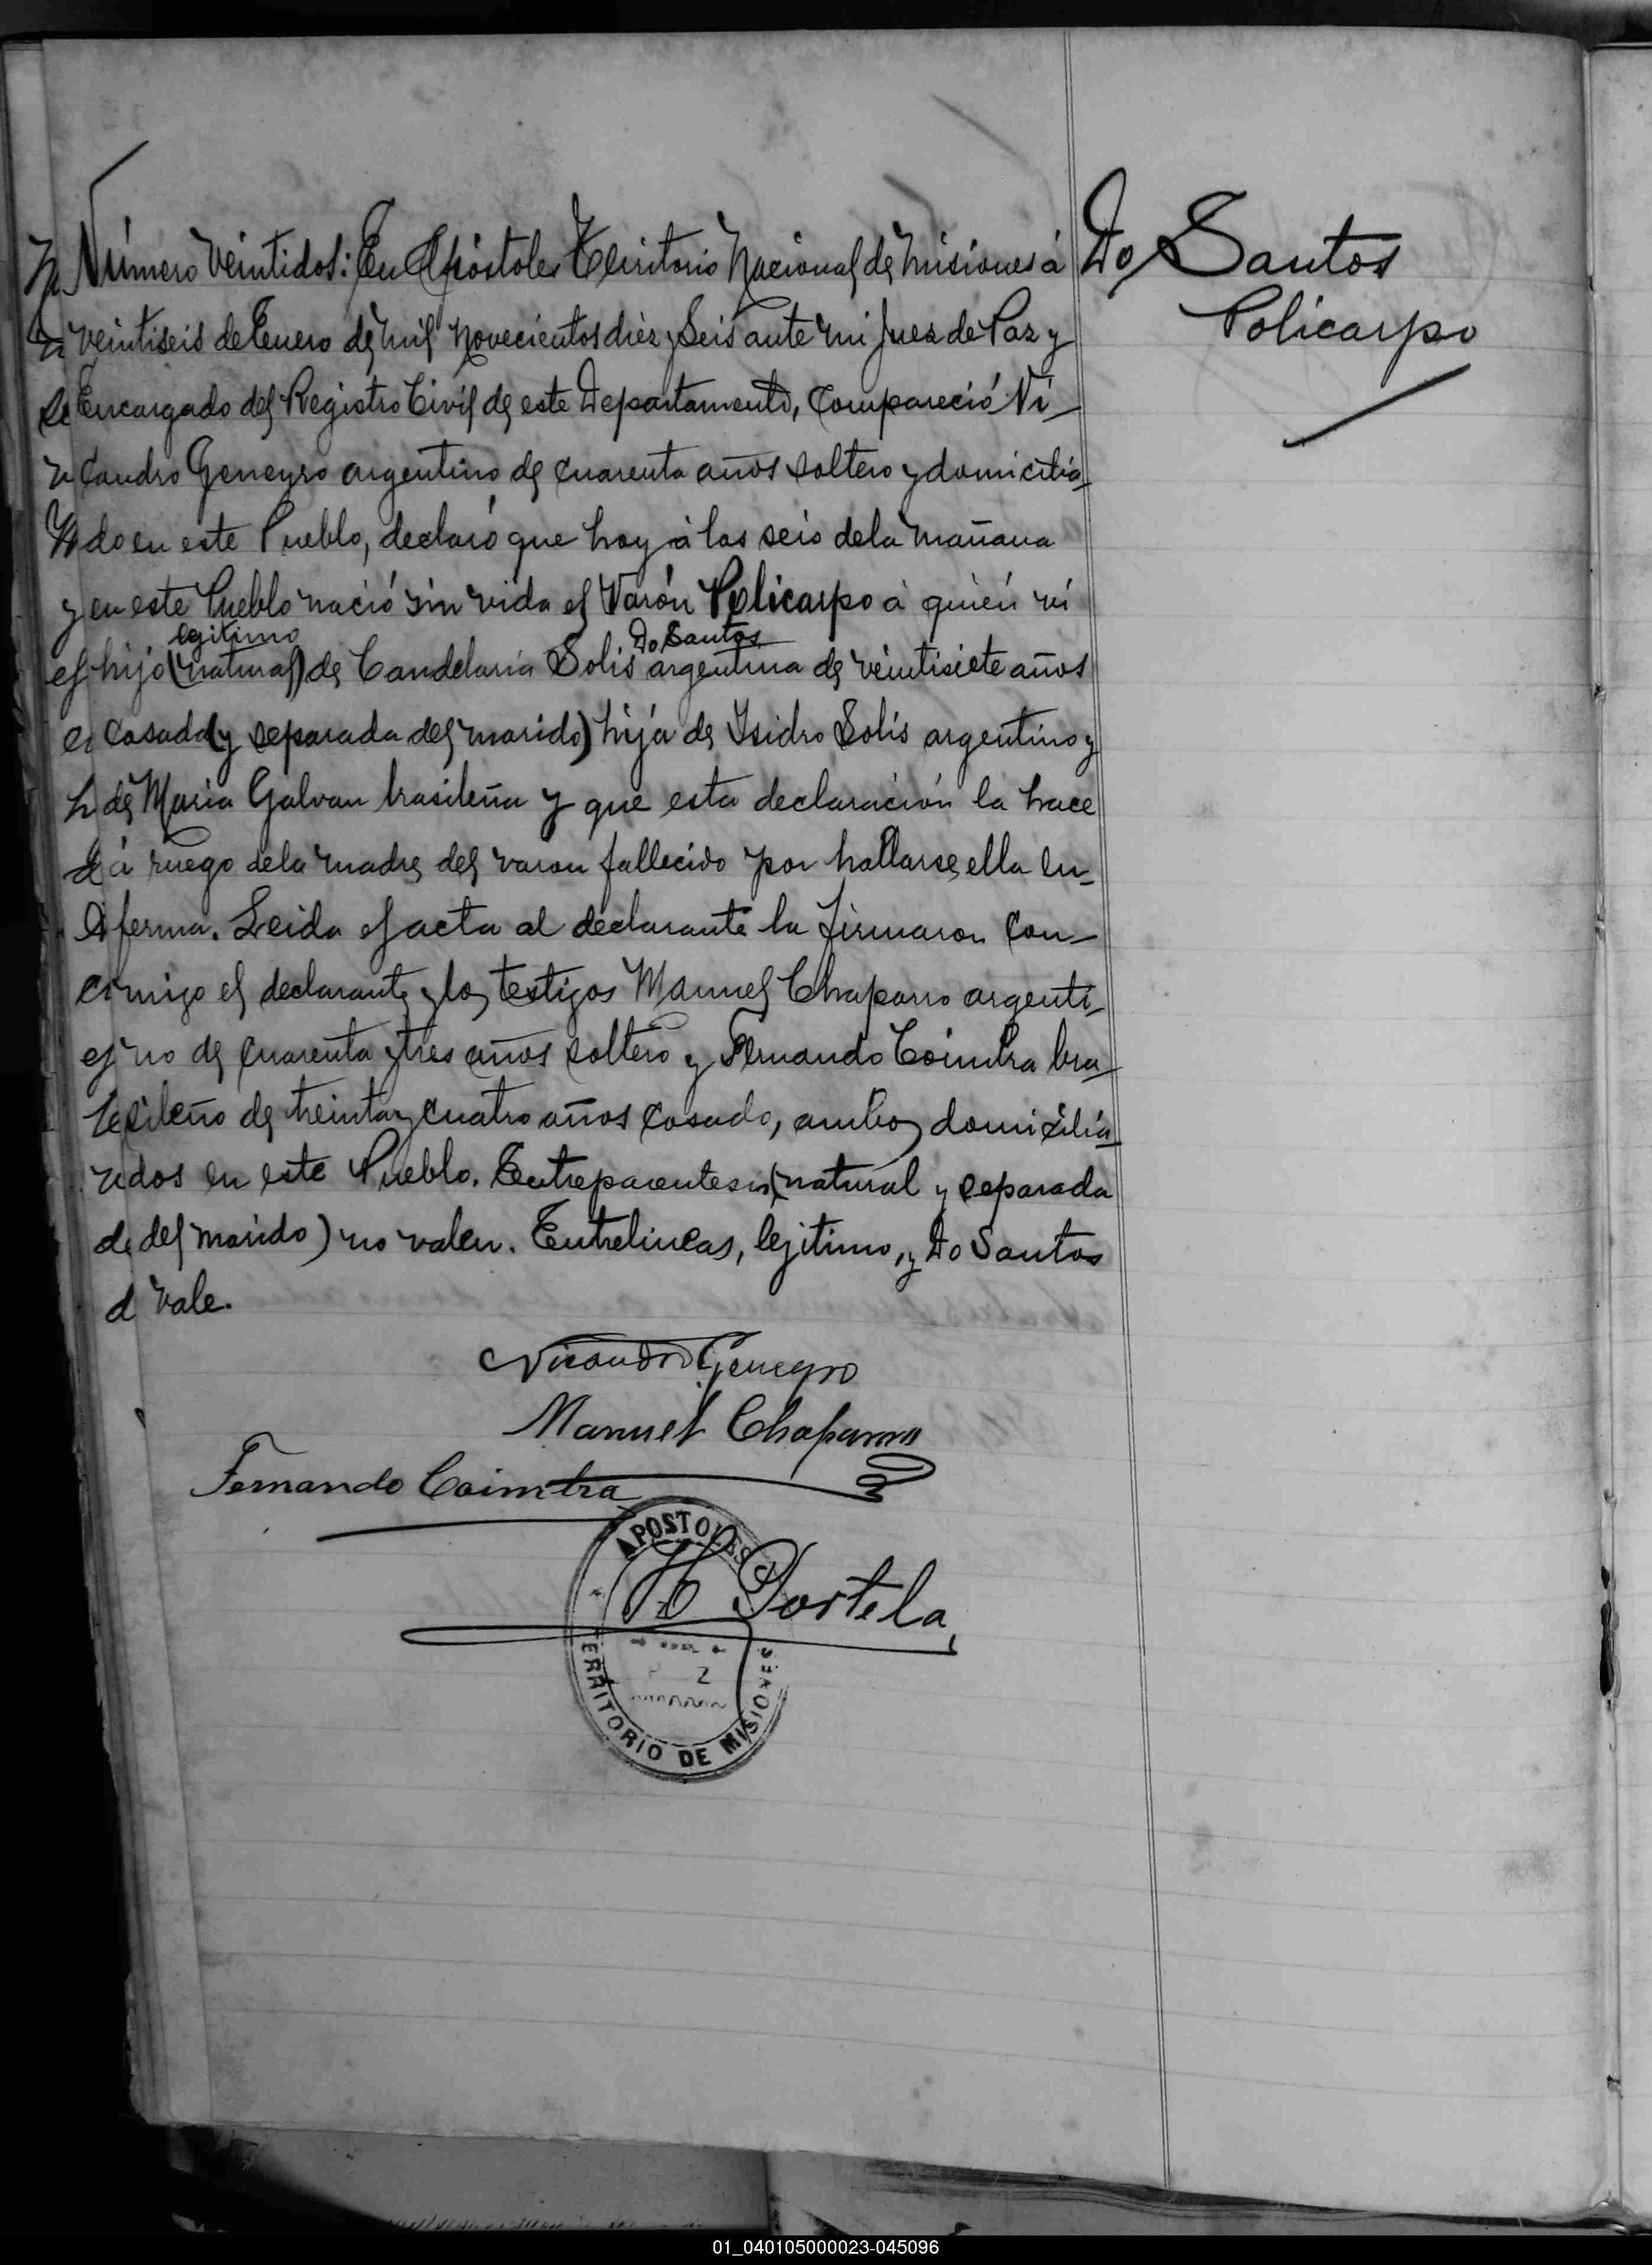 Número veintidos: En Apóstoles Territorio Nacional de Misiones á
veintiseis de Enero de mil novecientos diez y Seis ante mi Juez de Paz y
Encargado del Registro Civil de este Departamento, Compareció Ni-
candro Geneyro argentino de cuarenta años soltero y domicilia-
do en este Pueblo, declaró que hoy á las seis de la mañana
y en este Pueblo nació sin vida el Varón Policarpo á quién vi
legitimo Do Santos
hijo (natural) de Candelaria Solis argentina de veintisiete años
casada (y separada del marido) hija de Isidro Solis argentino y
de Maria Galvan brasileña y que esta declaración la hace
á ruego de la madre del varon fallecido por hallarse ella en-
ferma. Leida el acta al declarante la firmaron con-
migo el declarante y los testigos Manuel Chaparro argenti-
no de cuarenta y tres años soltero y Fernando Coimbra bra-
sileño de treinta y cuatro años casado, ambos domicilia-
dos en este Pueblo. Entreparentesis (natural y separada
del marido) no valen. Entrelineas, legitimo, y Do Santos
Vale.
Nicandro Geneyro
Manuel Chaparro
Fernando Coimbra
H Portela
APOSTOLES
TERRITORIO DE MISIONES
Do Santos
Policarpo
01_040105000023-045096